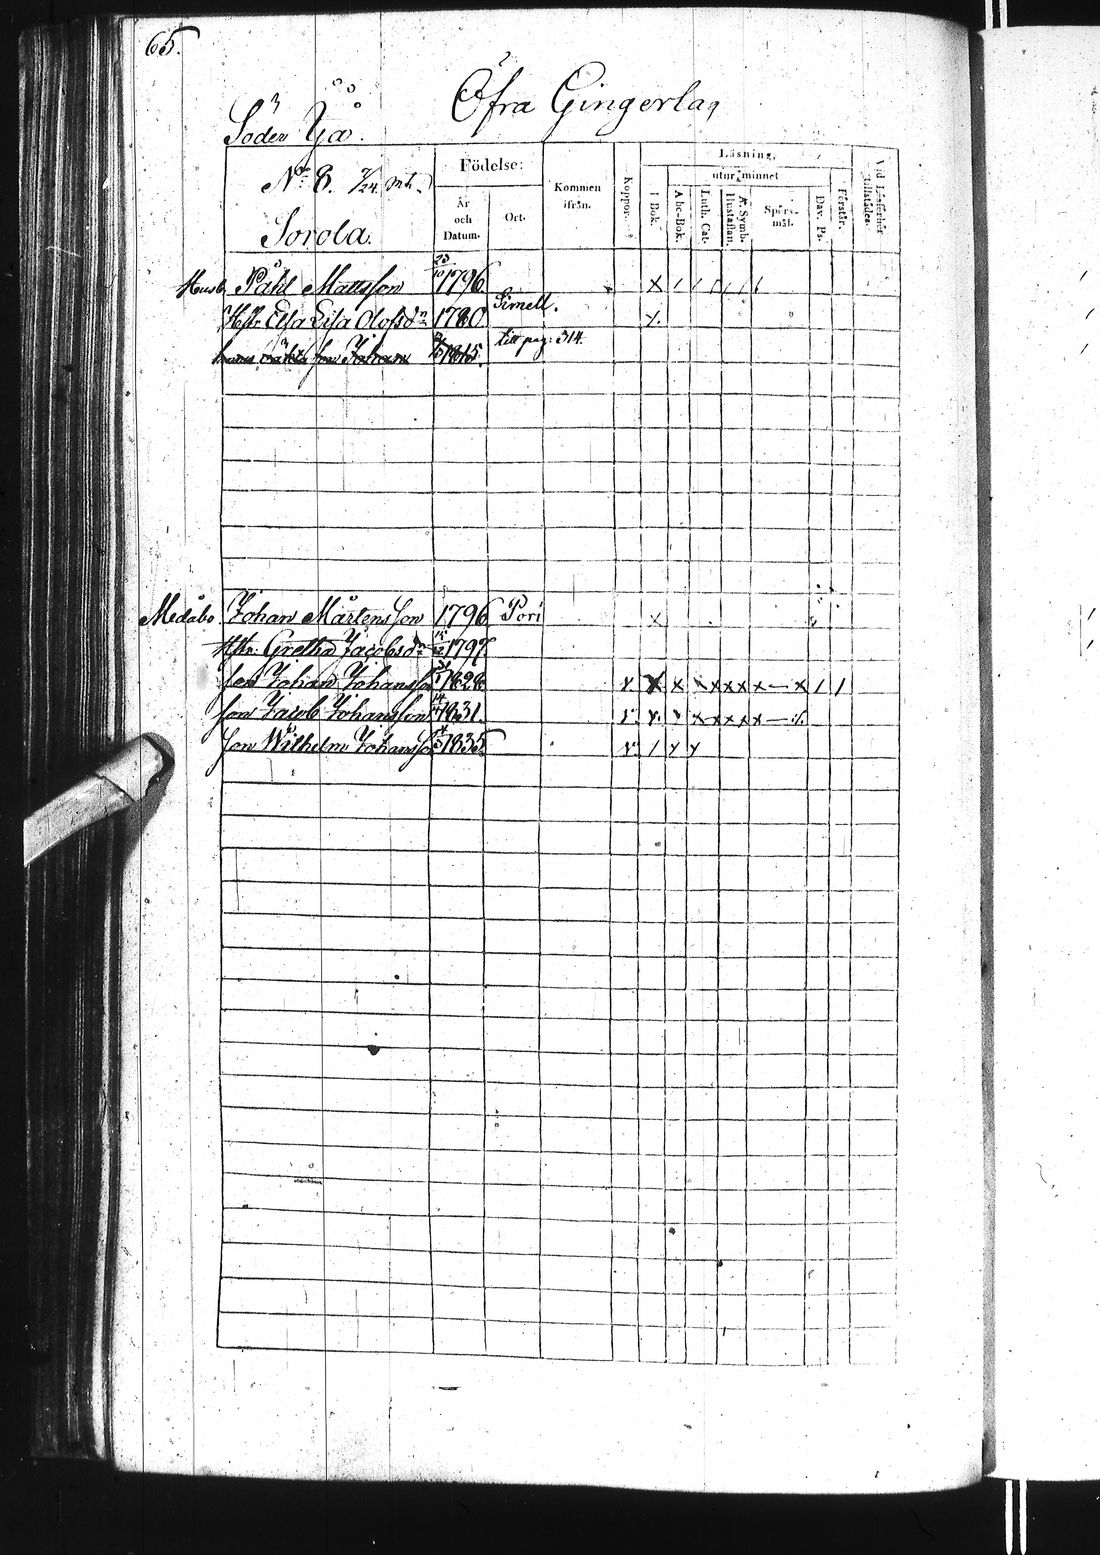 65.
Öfra Gingerla
Söder Yå.
No 8. 7/24 mtl.
Sorola.
Födelse:
År och Datum.
Ort.
Kommen ifrån.
Koppor.
Läsning,
utur minnet
I Bok.
Abc-Bok.
Luth. Cat.
A. Symb. Hustaflan.
Spörsmål.
Dav. Ps.
Förstår.
Vid Läseförhör tillstädes.
Husb. Påhl Mattsson 23/10 1796
Hstr. Elsa Lisa Olofsdr 1780 Simell.
Johan 1815. till pag: 314.
Medåbo Johan Mårtensson 1796 Pori x
Hstr. Gretha Jacobsdr 1797
son Johan Johansson 1828
son Jacob Johansson 1831.
son Wilhelm Johansson 1835